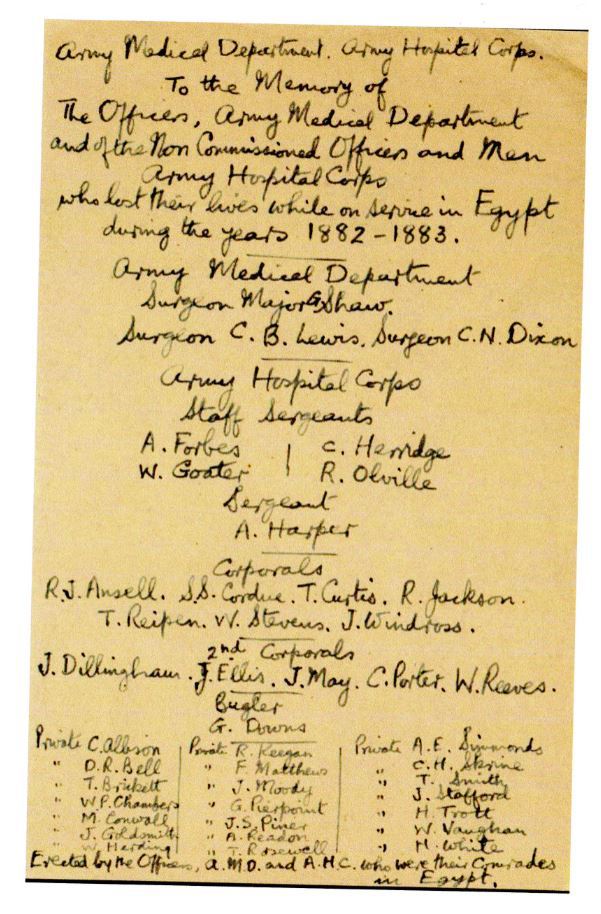 Army Medical Department. Army Hospital Corps.
To the Memory of
The Officers, Army Medical Department
and of the Non Commissioned Officers and Men
Army Hospital Corps
who lost their lives while on service in Egypt
during the years 1882-1883.
Army Medical Department
Surgeon Major G. Shaw.
Surgeon C. B. Lewis. Surgeon C. N. Dixon
Army Hospital Corps
Staff Sergeants
A. Forbes | C. Herridge
W. Goater | R. Olville
Sergeant
A. Harper
Corporals
R.J. Ansell. S.S. Cordue. T. Curtis. R. Jackson.
T. Reipen. W. Stevens. J. Windross.
2nd Corporals
J. Dillingham. J. Ellis. J. May. C. Porter. W. Reeves.
Bugler
G. Downs
Private C. Albson | Private R. Keegan | Private A. E. Simmonds
" D. R. Bell | " F. Matthews | " C. H. Skrine
" T. Brickett | " J. Moody | " T. Smith
" W. P. Chambers | " G. Pierpoint | " J. Stafford
" M. Conwall | " J. S. Piner | " H. Trott
" J. Goldsmith | " A. Readon | " W. Vaughan
" W. Harding | " T. Rosewell | " H. White
Erected by the Officers, A.M.D. and A.H.C. who were their Comrades
in Egypt.